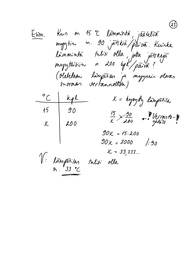 21
Esim. Kun on 15 °C lämmintä, jäätelöä
myytiin n. 90 jätskiä/päivä. Kuinka
lämmintä tulisi olla jotta jätskejä
myytäisiin n. 200 kpl/päivä?
(oletetaan lämpötilan ja myynnin olevan
suoraan verrannollisia)
°C kpl
15 90
x 200
x = kysytty lämpötila
15/x = 90/200
90x = 15·200
90x = 3000 /:90
x = 33,333...
V: lämpötilan tulisi olla
n. 33 °C